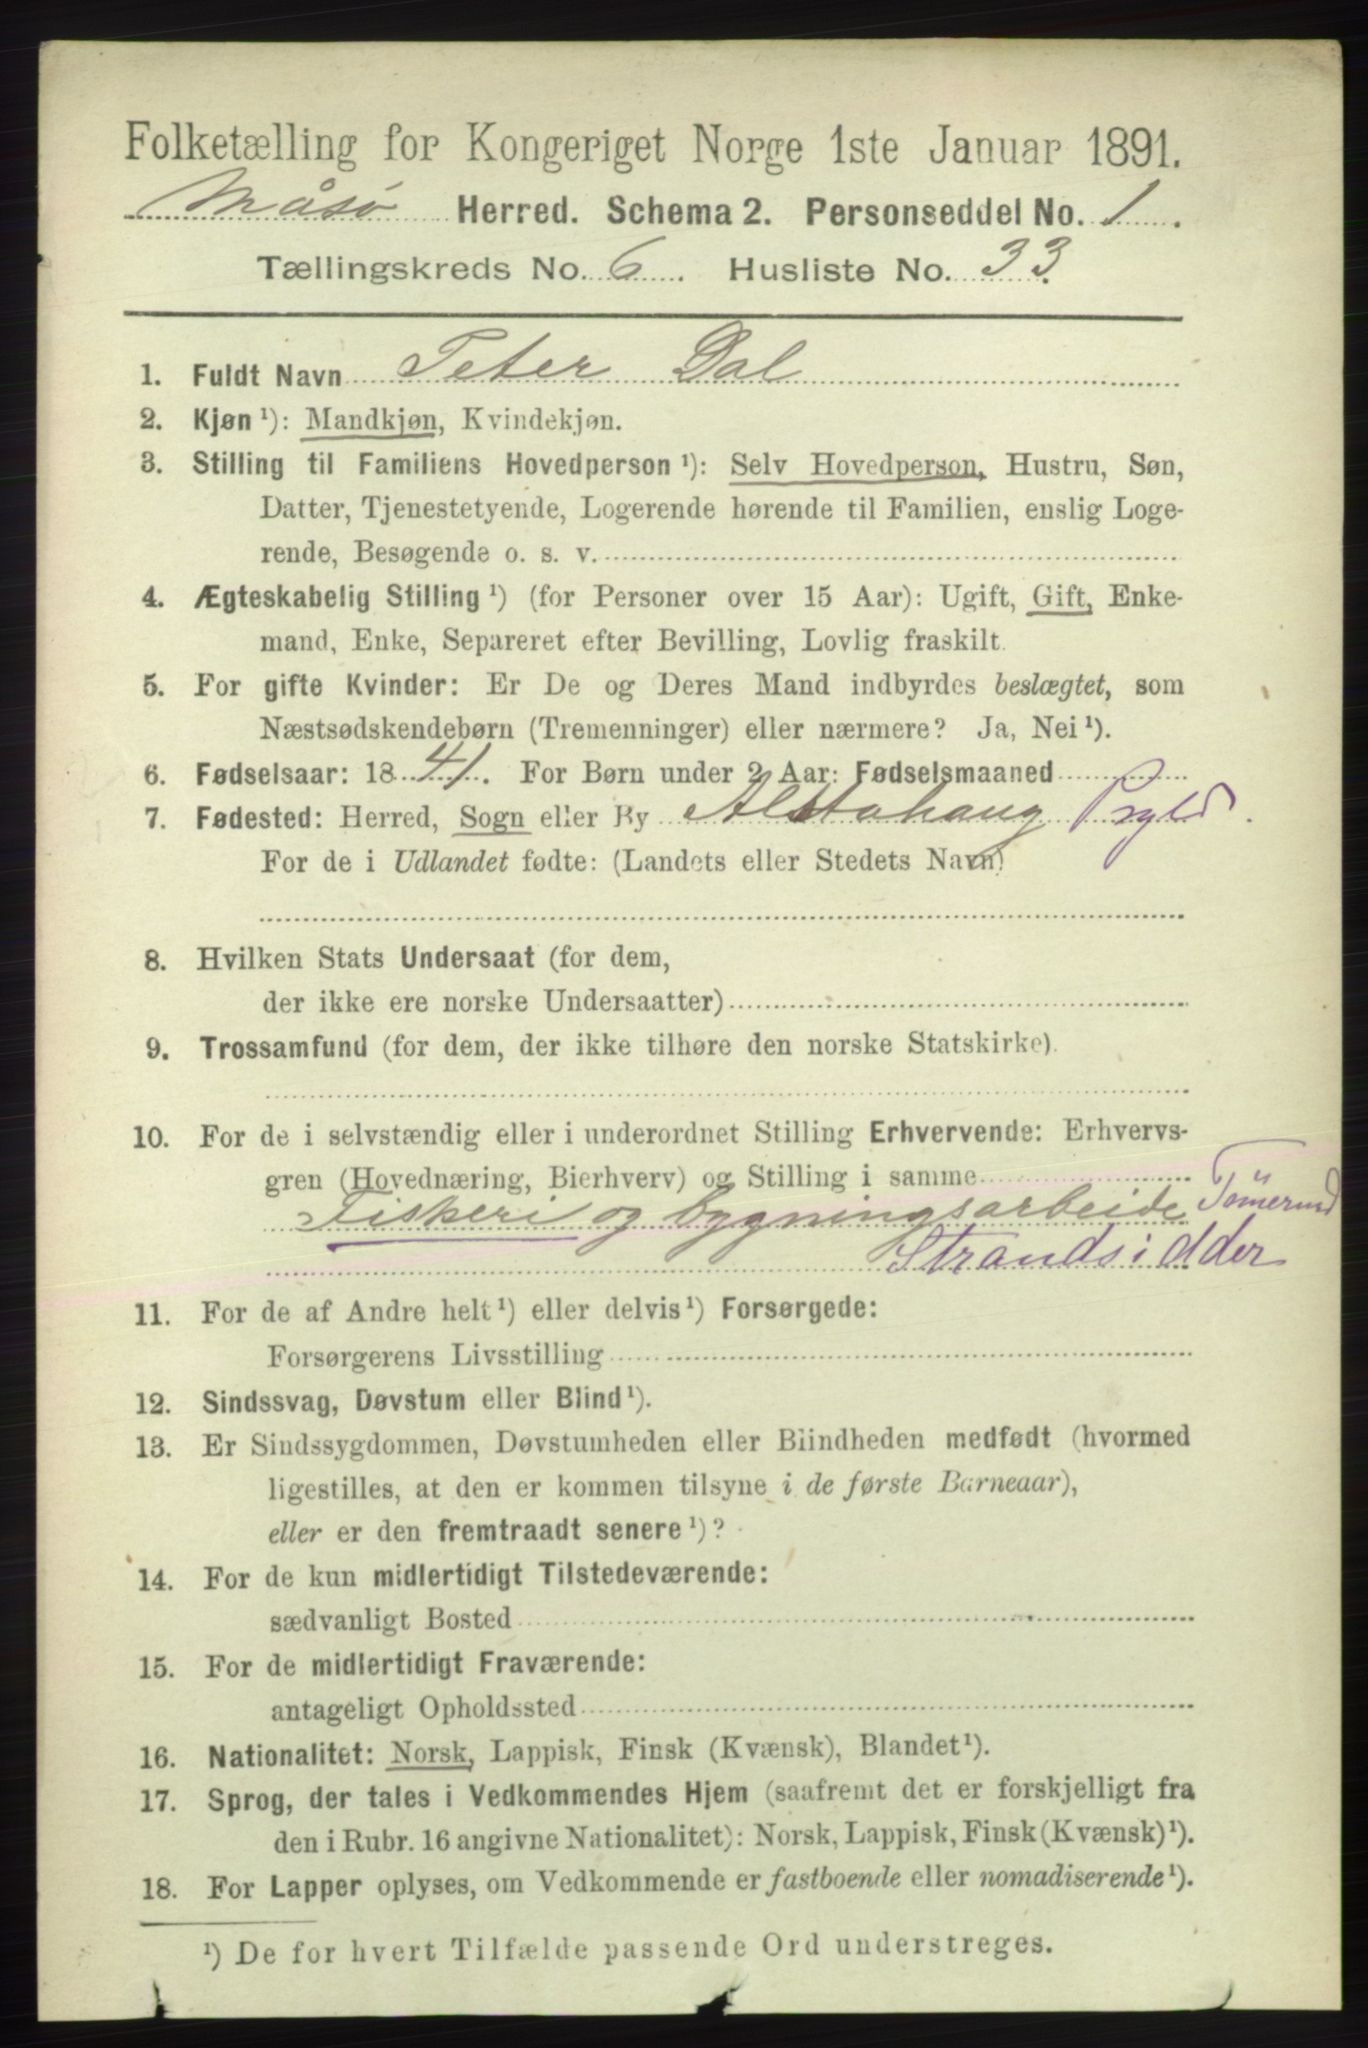 Folketælling for Kongeriget Norge 1ste Januar 1891.
Måsø Herred. Schema 2. Personseddel No. 1.
Tællingskreds No. 6. Husliste No. 33.
1. Fuldt Navn Peter Dal
2. Kjøn ¹): Mandkjøn, Kvindekjøn.
3. Stilling til Familiens Hovedperson ¹): Selv Hovedperson, Hustru, Søn,
Datter, Tjenestetyende, Logerende hørende til Familien, enslig Loge-
rende, Besøgende o. s. v.
4. Ægteskabelig Stilling ¹) (for Personer over 15 Aar): Ugift, Gift, Enke-
mand, Enke, Separeret efter Bevilling, Lovlig fraskilt.
5. For gifte Kvinder: Er De og Deres Mand indbyrdes beslægtet, som
Næstsødskendebørn (Tremenninger) eller nærmere? Ja, Nei ¹).
6. Fødselsaar: 1841. For Børn under 2 Aar: Fødselsmaaned
7. Fødested: Herred, Sogn eller By Alstahaug Prgld.
For de i Udlandet fødte: (Landets eller Stedets Navn)
8. Hvilken Stats Undersaat (for dem,
der ikke ere norske Undersaatter)
9. Trossamfund (for dem, der ikke tilhøre den norske Statskirke).
10. For de i selvstændig eller i underordnet Stilling Erhvervende: Erhvervs-
gren (Hovednæring, Bierhverv) og Stilling i samme
Fiskeri og bygningsarbeide Tömermd
Strandsidder
11. For de af Andre helt ¹) eller delvis ¹) Forsørgede:
Forsørgerens Livsstilling
12. Sindssvag, Døvstum eller Blind ¹).
13. Er Sindssygdommen, Døvstumheden eller Blindheden medfødt (hvormed
ligestilles, at den er kommen tilsyne i de første Barneaar),
eller er den fremtraadt senere ¹)?
14. For de kun midlertidigt Tilstedeværende:
sædvanligt Bosted
15. For de midlertidigt Fraværende:
antageligt Opholdssted
16. Nationalitet: Norsk, Lappisk, Finsk (Kvænsk), Blandet ¹).
17. Sprog, der tales i Vedkommendes Hjem (saafremt det er forskjelligt fra
den i Rubr. 16 angivne Nationalitet): Norsk, Lappisk, Finsk (Kvænsk) ¹).
18. For Lapper oplyses, om Vedkommende er fastboende eller nomadiserende ¹).
¹) De for hvert Tilfælde passende Ord understreges.